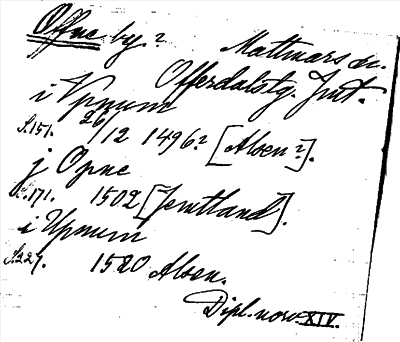 Offne by.?
Mattmars sn.
Offerdalstg. Jmt.
i Vpnum
S.151. 26/12 1496? [Alsen?].
j Opne
S.171. 1502 [Jemtland].
i Upnum
S.227. 1520 Alsen.
Dipl. norv. XIV.